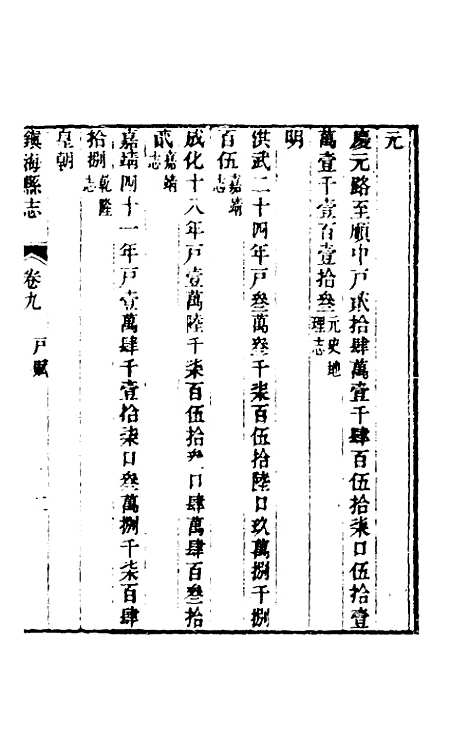 元
慶元路至順中戸貳拾肆萬壹千肆百伍拾柒口伍拾壹
萬壹千壹百壹拾叄元史地理志
明
洪武二十四年戸叄萬叄千柒百伍拾陸口玖萬捌千捌
百伍嘉靖志
成化十八年戸壹萬陸千柒百伍拾叄口肆萬肆百叄拾
貳嘉靖志
嘉靖四十一年戸壹萬肆千壹拾柒口叄萬捌千柒百肆
拾捌乾隆志
皇朝
鎮海縣志 卷九 戸賦